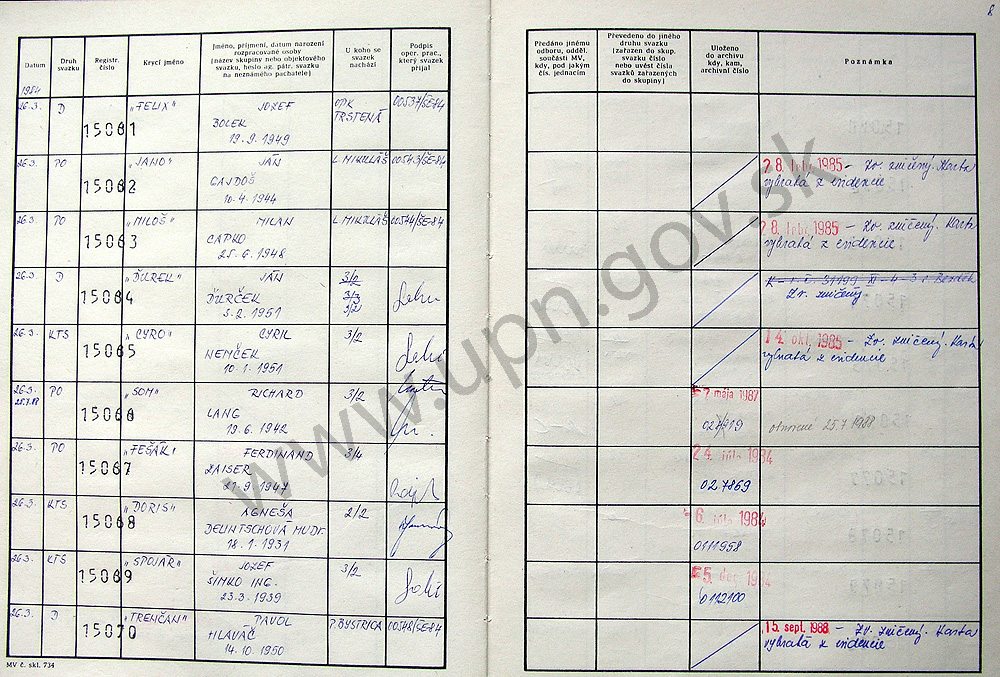 Datum
Druh svazku
Registr. číslo
Krycí jméno
Jméno, příjmení, datum narození
rozpracované osoby
(název skupiny nebo objektového
svazku, heslo ag. pátr. svazku
na neznámého pachatele)
U koho se
svazek
nachází
Podpis
oper. prac.,
který svazek
přijal
Předáno jinému
odboru, odděl.
součásti MV,
kdy, pod jakým
čís. jednacím
Převedeno do jiného
druhu svazku
(zařazen do skup.
svazku číslo
nebo uvést čísla
svazků zařazených
do skupiny)
Uloženo
do archivu
kdy, kam,
archivní číslo
Poznámka
1984
26.3. D 15061 „FELIX" JOZEF
BOLEK
19.9.1949
OPK
TRSTENÁ
00537/ŠE-84
26.3. PO 15062 „JANO" JÁN
GAJDOŠ
10.4.1944
L. MIKULÁŠ 00543/ŠE-84
28. febr. 1985 - Zv. zničený. Karta
vybratá z evidencie
26.3. PO 15063 „MILOŠ" MILAN
CAPKO
25.6.1948
L. MIKULÁŠ 00544/ŠE-84
28. febr. 1985 - Zv. zničený. Karta
vybratá z evidencie
26.3. D 15064 „ĎUREK" JÁN
ĎURČEK
5.2.1951
3/2
3/3
3/2
Zv. zničený
26.3. KTS 15065 „CYRO" CYRIL
NEMČEK
10.1.1951
3/2
14. okt. 1985 - Zv. zničený. Karta
vybratá z evidencie
26.3. PO 15066 „SOM" RICHARD
LANG
19.6.1942
3/2
7. mája 1987
otvorené 25.7.1988
26.3. PO 15067 „FEŠÁK" FERDINAND
ZAISER
21.9.1947
3/4
24. júla 1984
027869
26.3. KTS 15068 „DORIS" AGNEŠA
DELINTSCHOVÁ MUDr.
18.1.1931
2/2
6. júla 1984
0111958
26.3. KTS 15069 „SPOJÁR" JOZEF
ŠIMKO ING.
23.3.1939
3/2
5. dec. 1984
0112100
26.3. D 15070 „TRENČAN" PAVOL
HLAVÁČ
14.10.1950
P. BYSTRICA 00548/ŠE-84
15. sept. 1988 - Zv. zničený. Karta
vybratá z evidencie
MV č. skl. 734
www.upn.gov.sk